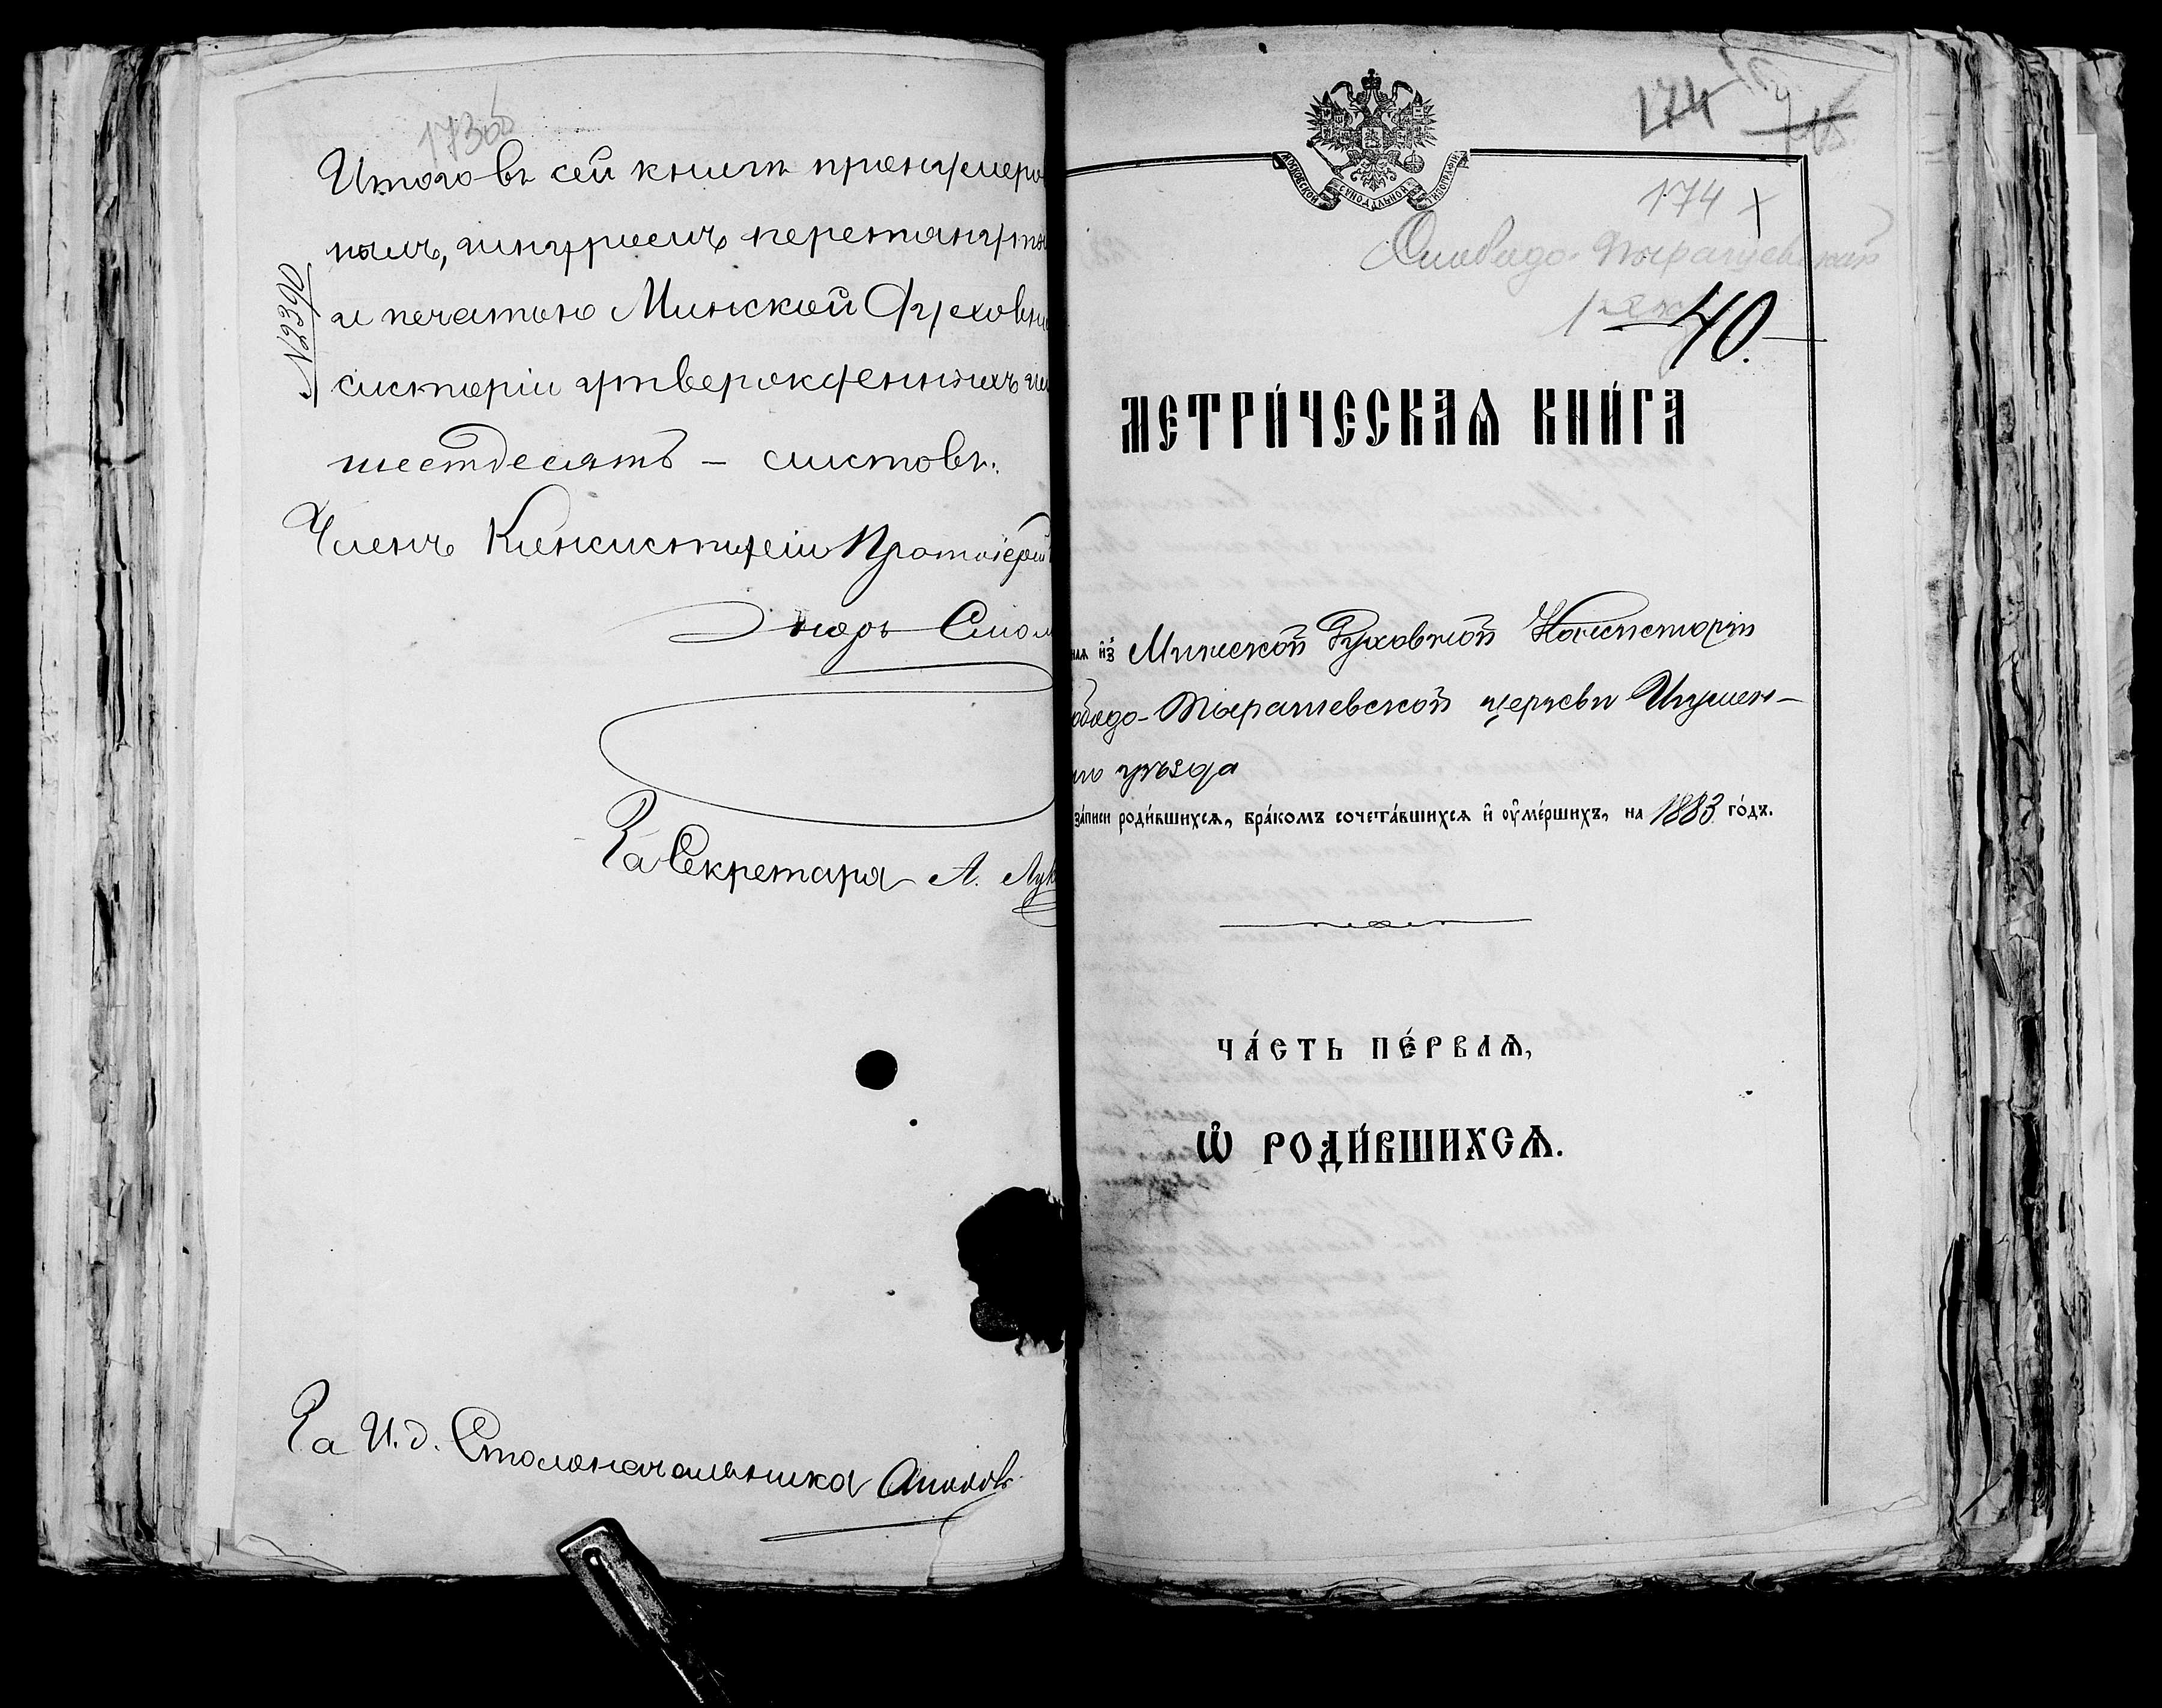 173об
Итого въ сей книгѣ пронумеро
нымъ, шнуромъ перетянуты
и печатью Минской Духовн
№2390
систоріи утвержденныхъ
шестдесятъ – листовъ.
Членъ Консисторіи Протоіерей
За Секретаря А. Лук
За И. д. Столоначальника
МОСКОВСКОЙ СѴНОДАЛЬНОЙ ТИПОГРАФІИ
174
174
Слободо-Пырашевская
1 экз
40.
МЕТРИ́ЧЕСКАѦ КНИ́ГА
наѧ и҆з̾ Минской Духовной Консисторіи
ободо-Пырашевской церкви Игумен-
го уѣзда
за́писи роди́вшихсѧ, бра́комъ сочета́вшихсѧ и҆ ᲂу҆ме́ршихъ, на 1883 го́дъ.
ЧА́СТЬ ПЕ́РВАѦ,
Ѽ РОДИ́ВШИХСѦ.